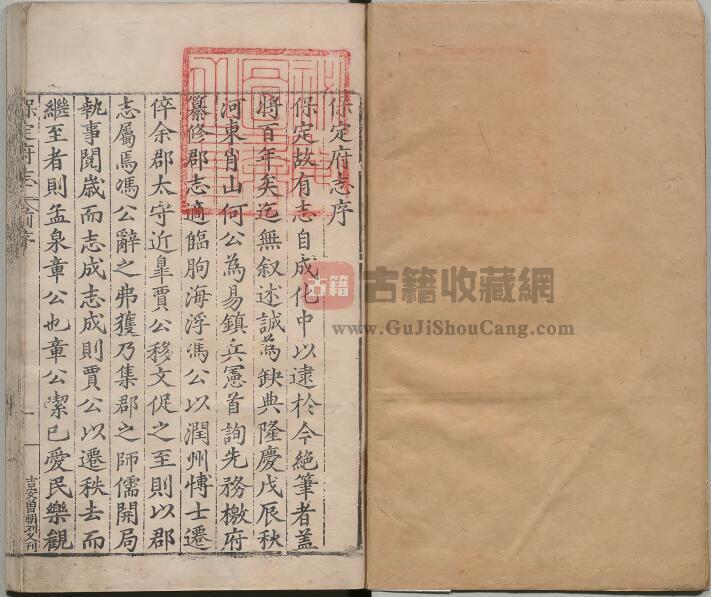 保定府志序
保定故有志自成化中以逮於今絶筆者蓋
將百年矣迄無叙述誠為缺典隆慶戊辰秋
河東肖山何公為易鎮兵憲首詢先務檄府
纂修郡志適臨朐海浮馮公以潤州愽士遷
倅余郡太守近臯賈公移文促之至則以郡
志屬焉馮公辭之弗獲乃集郡之師儒開局
執事閱歳而志成志成則賈公以遷秩去而
繼至者則孟泉章公也章公潔已愛民樂觀
保定府志 前序
一
吉安曽朝列文刊
古籍
古籍收藏網
www.GuJiShouCang.com